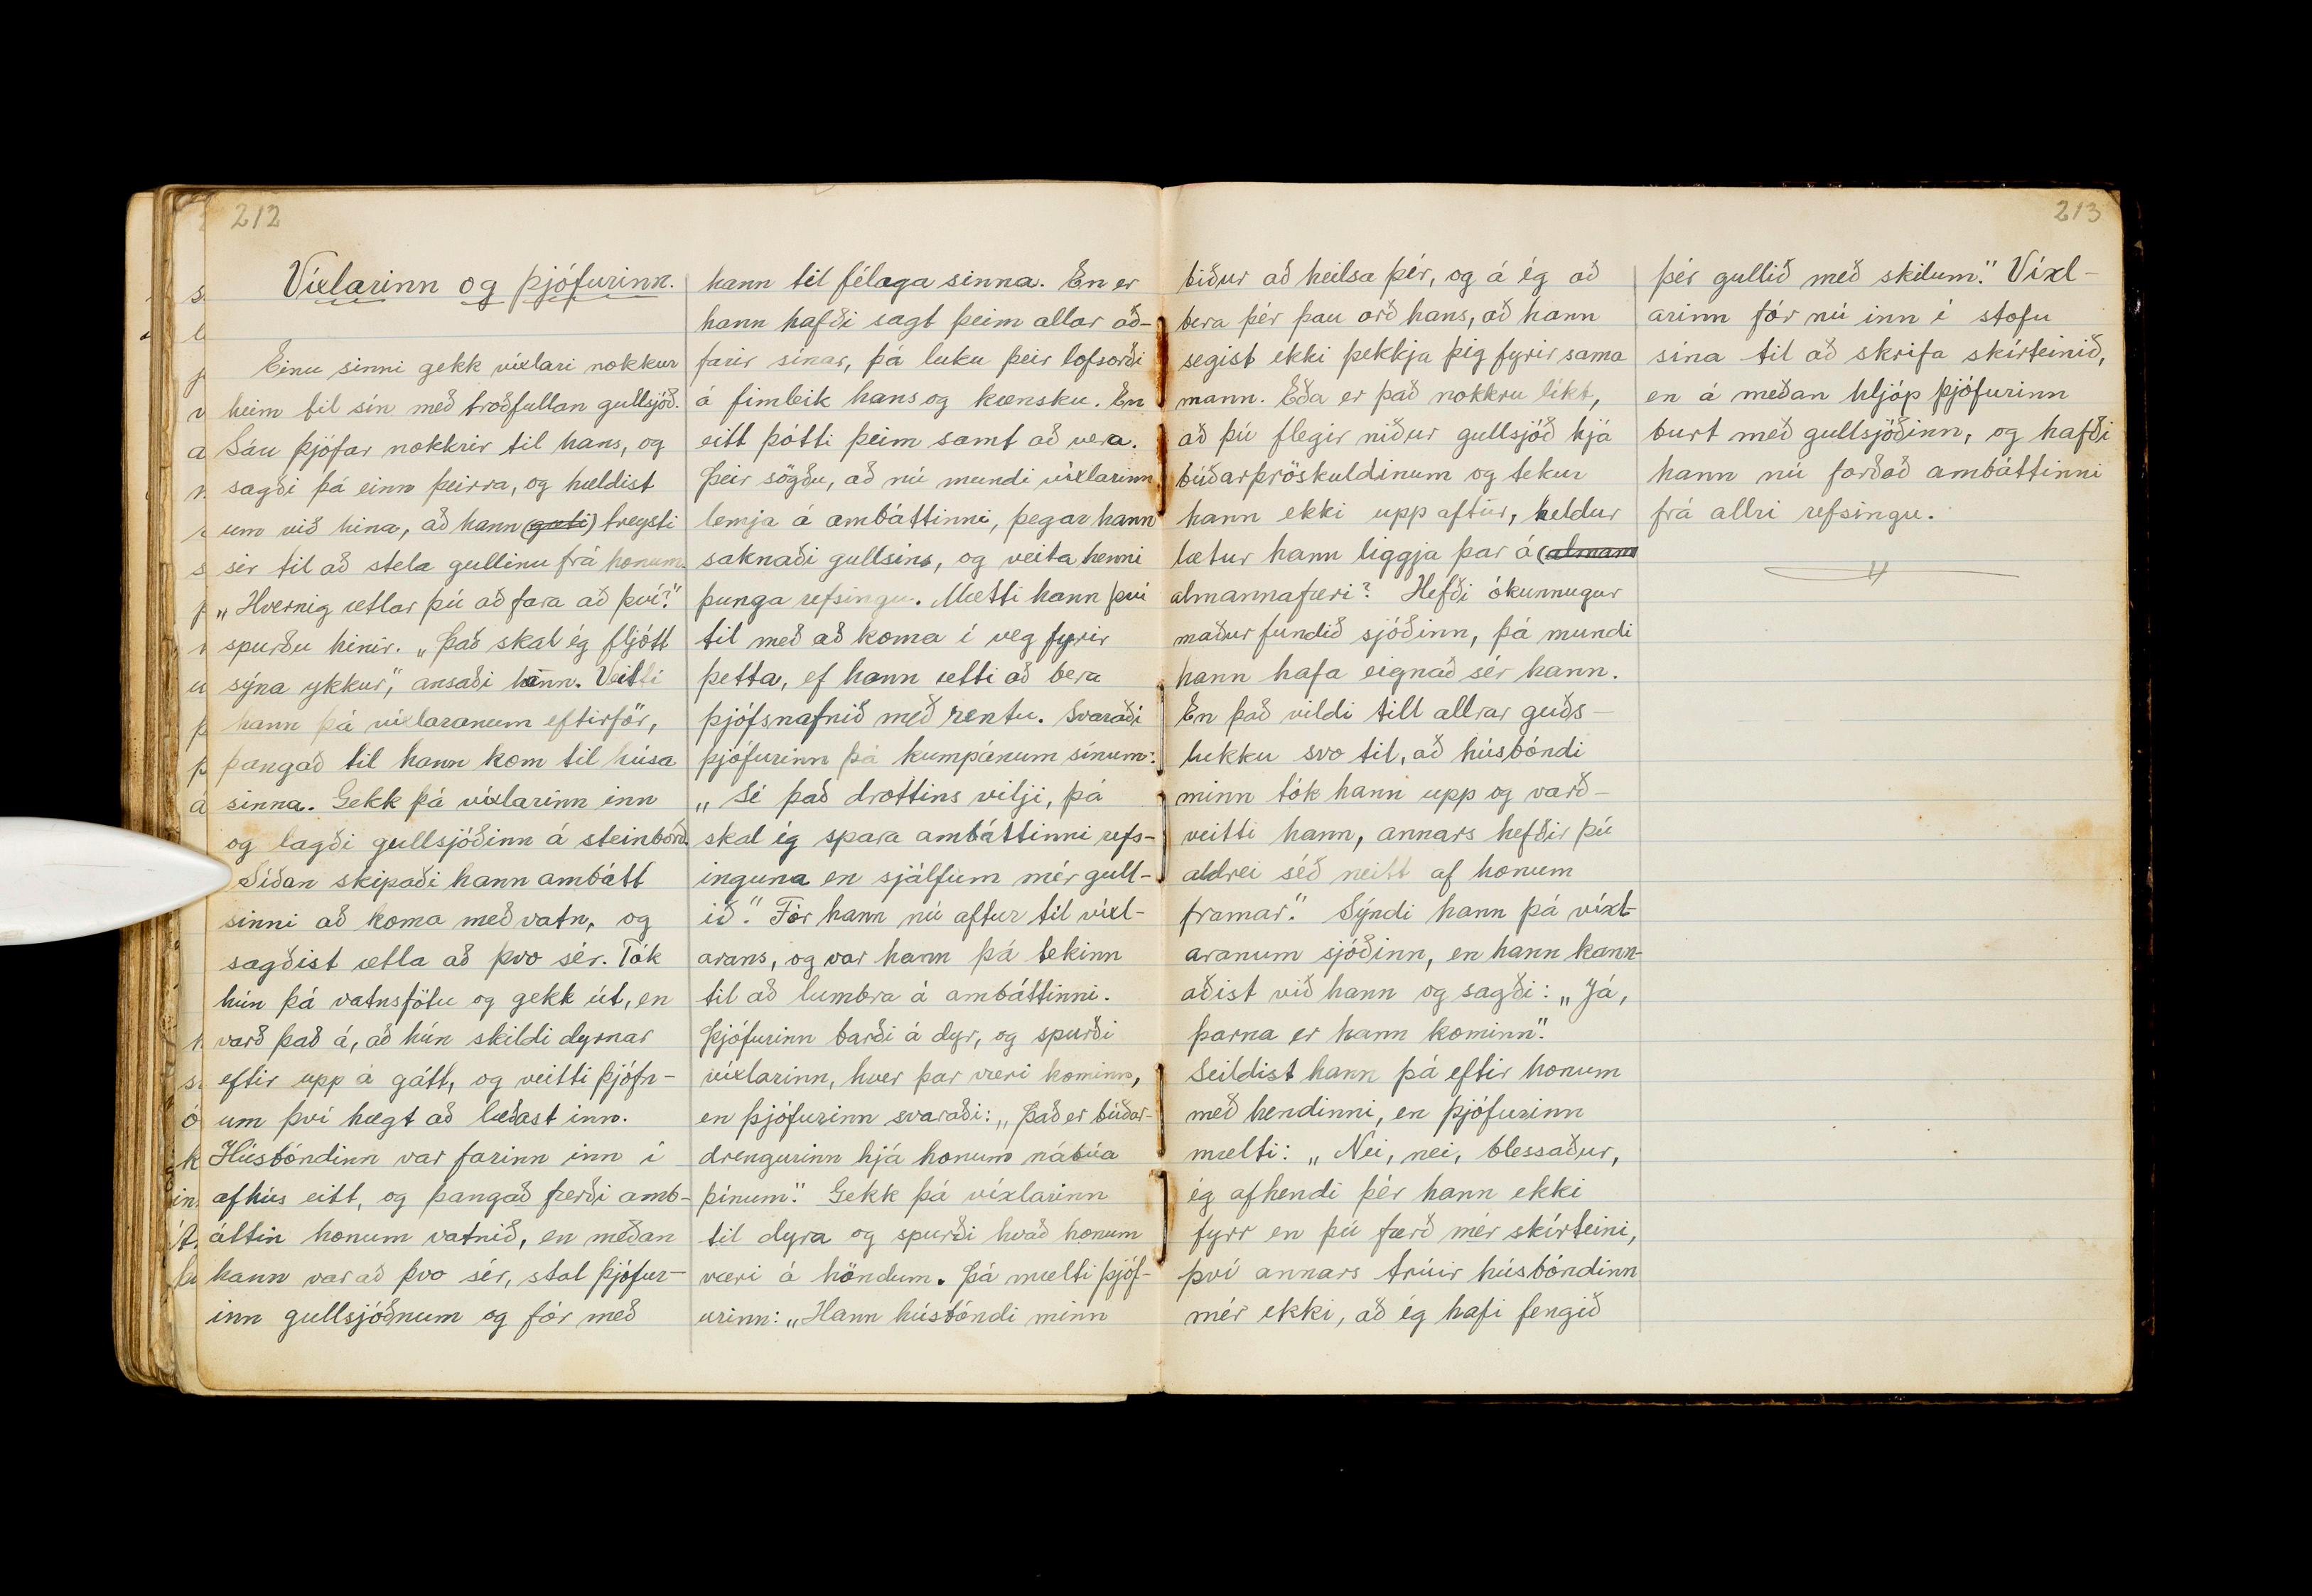 212
Víxlarinn og þjófurinn.
Einu sinni gekk víxlari nokkur
heim til sín með troðfullan gullsjóð.
Sáu þjófar nokkrir til hans, og
sagði þá einn þeirra, og hældist
um við hina, að hann (gæti) treysti
sér til að stela gullinu frá honum.
„Hvernig ætlar þú að fara að því?"
spurðu hinir. „Það skal ég fljótt
sýna ykkur", ansaði hann. Veitti
hann þá víxlaranum eftirför,
þangað til hann kom til húsa
sinna. Gekk þá víxlarinn inn
og lagði gullsjóðinn á steinborð.
Síðan skipaði hann ambátt
sinni að koma með vatn, og
sagðist ætla að þvo sér. Tók
hún þá vatnsfötu og gekk út, en
varð það á, að hún skildi dyrnar
eftir upp á gátt, og veitti þjófn-
um því hægt að læðast inn.
Húsbóndinn var farinn inn í
afhús eitt, og þangað færði amb-
áttin honum vatnið, en meðan
hann var að þvo sér, stal þjófur-
inn gullsjóðnum og fór með
hann til félaga sinna. En er
hann hafði sagt þeim allar að-
farir sínar, þá luku þeir lofsorði
á fimleik hans og kænsku. En
eitt þótti þeim samt að vera.
Þeir sögðu, að nú mundi víxlarinn
lemja á ambáttinni, þegar hann
saknaði gullsins, og veita henni
þunga refsingu. Mætti hann því
til með að koma í veg fyrir
þetta, ef hann ætti að bera
þjófsnafnið með rentu. Svaraði
þjófurinn þá kumpánum sínum:
„Sé það drottins vilji, þá
skal ég spara ambáttinni refs-
inguna en sjálfum mér gull-
ið." Fór hann nú aftur til víxl-
arans, og var hann þá tekinn
til að lumbra á ambáttinni.
Þjófurinn barði á dyr, og spurði
víxlarinn, hver þar væri kominn,
en þjófurinn svaraði: „Það er búðar-
drengurinn hjá honum nábúa
þínum." Gekk þá víxlarinn
til dyra og spurði hvað honum
væri á höndum. Þá mælti þjóf-
urinn: „Hann húsbóndi minn
213
biður að heilsa þér, og á ég að
bera þér þau orð hans, að hann
segist ekki þekkja þig fyrir sama
mann. Eða er það nokkru líkt,
að þú flegir niður gullsjóð hjá
búðarþröskuldinum og tekur
hann ekki upp aftur, heldur
lætur hann liggja þar á (almann
almannafæri? Hefði ókunnugur
maður fundið sjóðinn, þá mundi
hann hafa eignað sér hann.
En það vildi till allrar guðs-
lukku svo til, að húsbóndi
minn tók hann upp og varð-
veitti hann, annars hefðir þú
aldrei séð neitt af honum
framar." Sýndi hann þá víxl-
aranum sjóðinn, en hann kann-
aðist við hann og sagði: „Já,
þarna er hann kominn".
Seildist hann þá eftir honum
með hendinni, en þjófurinn
mælti: „Nei, nei, blessaður,
ég afhendi þér hann ekki
fyrr en þú færð mér skírteini,
því annars trúir húsbóndinn
mér ekki, að ég hafi fengið
þér gullið með skilum." Víxl-
arinn fór nú inn í stofu
sína til að skrifa skírteinið,
en á meðan hljóp þjófurinn
burt með gullsjóðinn, og hafði
hann nú forðað ambáttinni
frá allri refsingu.